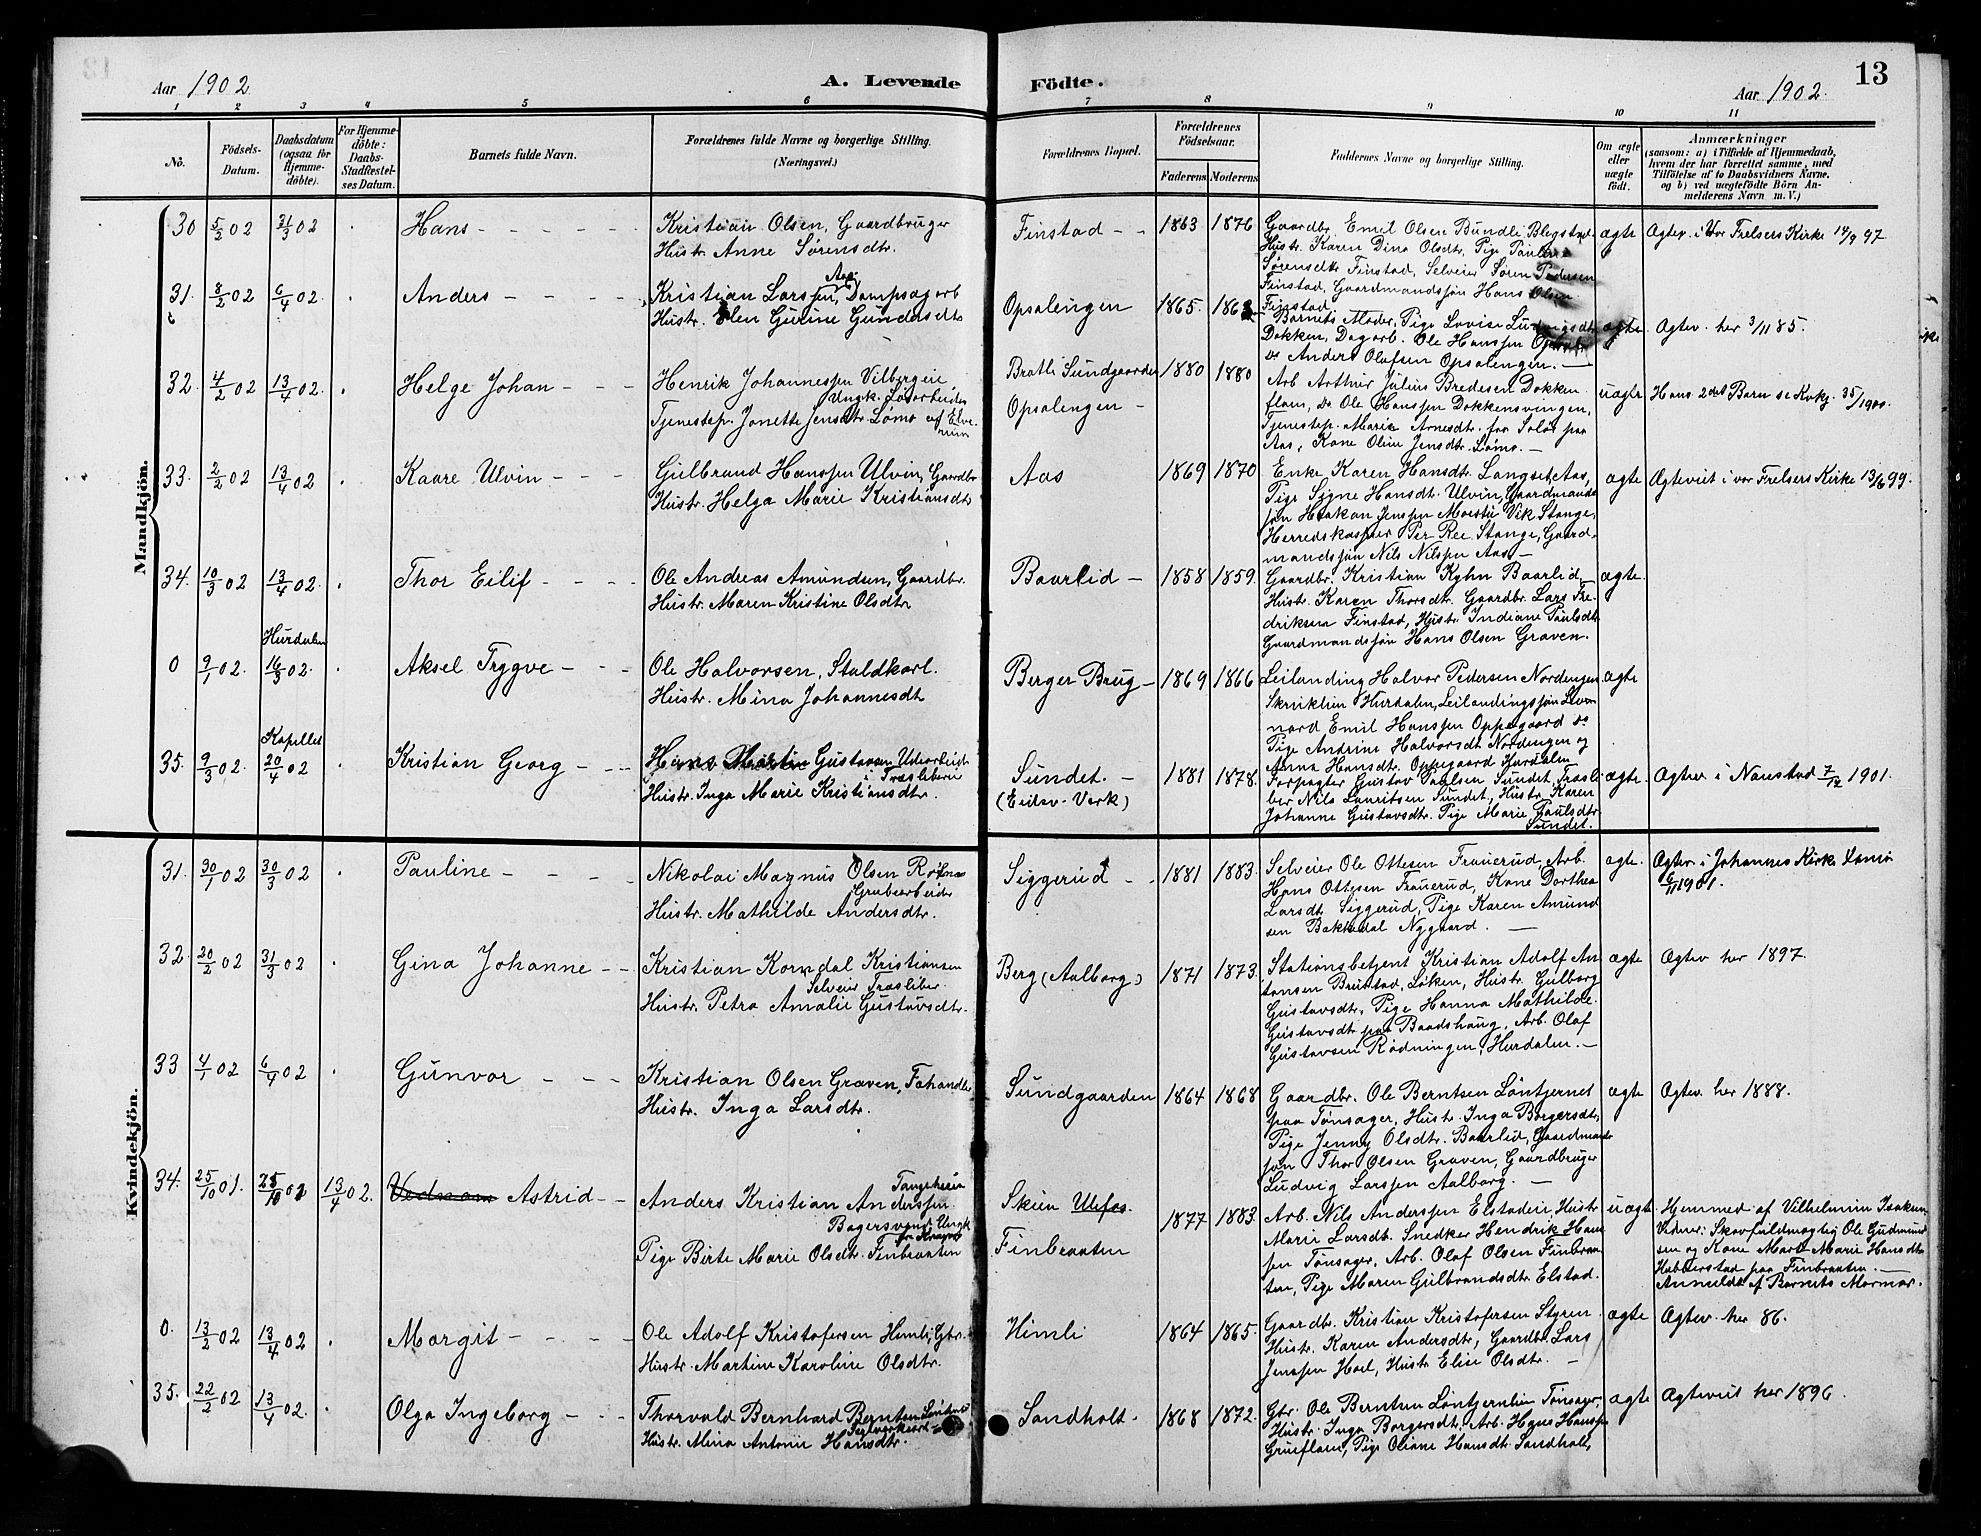 Aar 1902.
A. Levende Födte.
13
Aar 1902.
1 2 3 4 5 6 7 8 9 10 11
No.
Födsels-
Datum.
Daabsdatum
(ogsaa för
Hjemme-
döbte).
For Hjemme-
döbte:
Daabs-
Stadfæstel-
ses Datum.
Barnets fulde Navn.
Forældrenes fulde Navne og borgerlige Stilling.
(Næringsvei.)
Forældrenes Bopæl.
Forældrenes
Födselsaar.
Faderens Moderens
Faddernes Navne og borgerlige Stilling.
Om ægte
eller
uægte
födt.
Anmærkninger
(saasom: a) i Tilfælde af Hjemmedaab,
hvem der har forrettet samme, med
Tilföielse af to Daabsvidners Navne.
og b) ved uægtefödte Börn An-
melderens Navn m. V.)
Mandkjön.
30 5/2 02 31/3 02 Hans
Kristian Olsen, Gaardbruger
Hustr. Anne Sørensdtr.
Finstad 1863 1876
Gaardbr. Emil Olsen Bundli Blegstad
Hustr. Karen Dina Olsdtr, Pige Pauline
Sørensdtr Finstad, Selveier Søren Pedersen
Finstad, Gaardmandssøn Hans Olsen
Finstad
ægte
Ægtev. i Vor Frelsers Kirke 14/9 97
31. 8/2 02 6/4 02. Anders
Kristian Larssen, Aas, Dampsagarb
Hustr. Elen Gurine Gundersdtr
Opsalengen 1865.
Barnets Moder, Pige Lovise Ludvigsdtr
Dokken, Dagarb. Ole Hanssen
do Anders Olafsen Opsalengen.
ægte
Ægtev. her 3/11 85.
32. 4/2 02 13/4 02. Helge Johan
Henrik Johannessen Vilbergeie
Ungk. Løsarbeider
Tjenestep. Jonette Jensdtr Lømo af Elve-
rum
Bratli Sundgaarden
Opsalengen 1880 1880
Arb Arthur Julius Bredesen Dokken
flaen, do Ole Hanssen Dokkensvingen,
Tjenestep. Marie Arnesdtr. fra Solør paa
Aas, Kone Oline Jensdtr. Lømo.
uægte
Hans 2det Barn se Kvkj. 35/1900.
33. 2/2 02 13/4 02 Kaare Ulvin
Gulbrand Hanssen Ulvin, Gaardbr
Hustr. Helga Marie Kristiansdtr
Aas 1869 1870
Enke Karen Hansdtr. Langset Aas,
Pige Signe Hansdtr. Ulvin, Gaardmands
søn Haakon Jenssen Moestu Vik Stange,
Herredskasserer Per Ree Stange, Gaard
mandssøn Nils Nilssen Aas
ægte
Ægteviet i vor Frelsers Kirke 13/6 99.
34. 10/3 02 13/4 02. Thor Eilif
Ole Andreas Amundsen, Gaardbr.
Hustr. Maren Kristine Olsdtr
Baarlid 1858 1859.
Gaardbr. Kristian Kyhn Baarlid
Hustr. Karen Thorsdtr. Gaardbr Lars Fre-
driksen Finstad, Hustr. Indiane Paulsdtr
Gaardmandssøn Hans Olsen Graven.
ægte.
0 9/1 02. Hurdalen 16/3 02. Aksel Trygve
Ole Halvorsen, Staldkarl.
Hustr. Mina Johannesdtr
Berger Brug 1869 1866
Leilænding Halvor Pedersen Nordengen
Skrukliien Hurdalen, Leilændingssøn Leon
nard Emil Hanssen Oppegaard do
Pige Andrine Halvorsdtr Nordengen og
Anna Hansdtr. Oppegaard Hurdalen
ægte
35. 9/3 02. Kapellet 20/4 02 Kristian Georg
Hans Martin Gustavsen Udearbeider
i Træsliberie
Hustr. Inga Marie Kristiansdtr.
Sundet.
(Eidsv. Værk)
1881 1878.
Forpagter Gustav Paulsen Sundet, Træsli
ber Nils Lauritsen Sundet, Hustr. Karen
Johanne Gustavsdtr. Pige Marie Paulsdtr
Sundet.
ægte.
Ægtev i Nannestad 7/12 1901.
Kvindekjön.
31. 30/1 02 30/3 02 Pauline
Nikolai Magnus Olsen Røfnæs
Grubearbeider
Hustr. Mathilde Andersdtr.
Siggerud 1881 1883.
Selveier Ole Ottesen Frauerud, Arb.
Hans Ottesen Frauerud, Kone Dorthea
Larsdtr. Siggerud, Pige Karen Amund
sen Bakkedal Nygaard.
ægte.
Ægtev. i Johannes Kirke
6/11 1901.
32. 20/2 02 31/3 02 Gina Johanne
Kristian Korndal Kristiansen
Selveier Træsliber
Hustr. Petra Amalie Gustavsdtr.
Berg (Aalborg) 1871 1873.
Stationsbetjent Kristian Adolf An
tonsen Brustad, Løken, Hustr. Gulborg
Gustavsdtr, Pige Hanna Mathilde
Gustavsdtr paa Baadshaug, Arb. Olaf
Gustavsen Rødningen, Hurdalen.
ægte
Ægtev her 1897.
33 4/1 02 6/4 02 Gunvor
Kristian Olsen Graven, Fæhandler
Hustr. Inga Larsdtr.
Sundgaarden 1864 1868
Gaardbr. Ole Berntsen Løntjernet
paa Tønsager, Hustr. Inga Borgersdtr,
Pige Jenny Olsdtr. Baarlid, Gaardmands
søn Thor Olsen Graven, Gaardbruger
Ludvig Larssen Aalborg.
ægte
Ægtev. her 1888.
34. 25/10 01. 25/10 01 13/4 02. Astrid
Anders Kristian Anderssen
Bagersvend Ungk
fra Kragerø
Pige Birte Marie Olsdtr. Finbraaten
Skien Ulefos
Finbraaten
1877 1883.
Arb. Nils Anderssen Elstadeie, Hustr
Marie Larsdtr. Snedker Hendrik Hans
sen Tønsager, Arb. Olaf Olsen Finbraa
ten, Pige Maren Gulbrandsdtr. Elstad.
uægte
Hemmed af Vilhelmine Isaksen
Vidner: Skovfuldmægtig Ole Gudmund
sen og Kone Marte Marie Hansdtr
Habberstad paa Finbraaten.
Anmeldt af Barnets Mormor.
0. 13/2 02 13/4 02 Margit
Ole Adolf Kristofersen Himli, Gbr.
Hustr. Martine Karoline Olsdtr.
Himli 1864 1865.
Gaardbr. Kristian Kristofersen Styren
Hustr. Karen Andersdtr, Gaardbr Lars
Jenssen Hoel, Hustr Elise Olsdtr.
ægte
Ægtev. her 86.
35. 22/2 02 13/4 02. Olga Ingeborg
Thorvald Bernhard Berntsen
Hustr. Mina Antonie Hansdtr.
Sandholt 1868 1872.
Gbr. Ole Berntsen Løntjernlien Tønsager,
Hustr. Inga Borgersdtr, Arb. Hans Hanssen
Grueflaen, Pige Oliane Hansdtr. Sandholt,
ægte
Ægteviet her 1896.